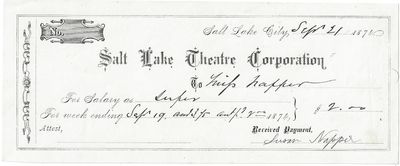 No.
Salt Lake City, Sept 21 1874
Salt Lake Theatre Corporation
To Miss Napper
For Salary as super
For week ending Sept 19, 1874, $2.00
Attest, Received Payment,
Napper